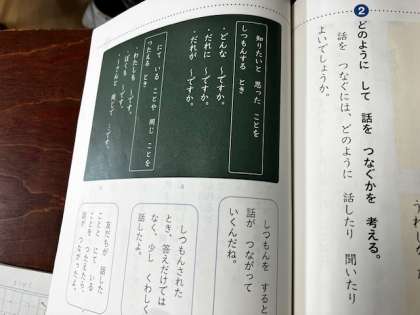 ❷どのように して 話を つなぐかを 考える。
話を つなぐには、どのように 話したり 聞いたり
よいでしょうか。
知りたいと 思った ことを
しつもんする とき
・どんな 〜ですか。
・だれに 〜ですか。
・だれが 〜ですか。
にて いる ことや 同じ ことを
つたえる とき
・わたしも 〜です。
・ぼくも 〜です。
・〜さんと 同じで 〜です。
しつもんを すると
話が つながって
いくんだね。
しつもんされた
とき、答えだけでは
なく、少し くわしく
話したよ。
友だちが 話した
ことと にて いる
ことを つたえたら、
話が つながったよ。